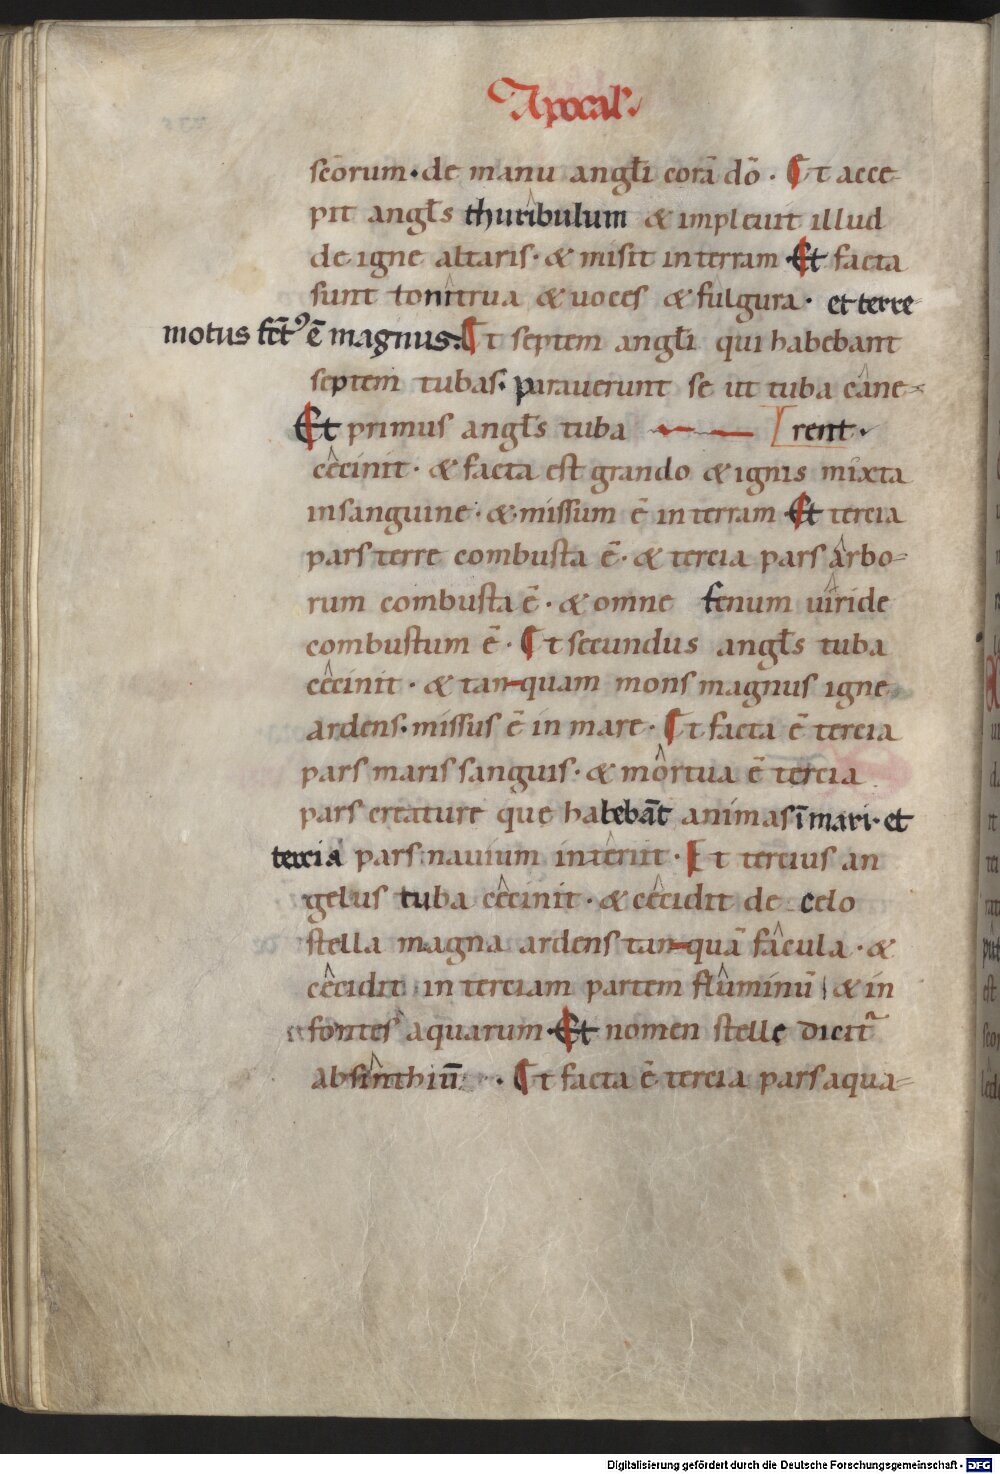 Apocal᷒
sc̄orum · de manu angl̄i corā dō · Et acce-
pit angl̄s thuribulum & impleuit illud
de igne altaris · & misit in terram · Et facta
sunt tonitrua & uoces & fulgura · et terre
motus fct̄⁹ ē magnus. Et septem angl̄i qui habebant
septem tubas · parauerunt se ut tuba cane-
Et primus angl̄s tuba rent ·
cecinit · & facta est grando & ignis mixta
insanguine · & missum ē in terram · Et tercia
pars terre combusta ē · & tercia pars arbo-
rum combusta ē · & omne fenum uiride
combustum ē · Et secundus angl̄s tuba
cecinit · & tan-quam mons magnus igne
ardens · missus ē in mare · Et facta ē tercia
pars maris sanguis · & mortua ē tercia
pars creature que habebāt animas ī mari · et
tercia pars nauium interiit · Et tercius an
gelus tuba cecinit · & cecidit de celo
stella magna ardens tan-quā facula · &
cecidit in terciam partem fluminū & in
fontes aquarum · Et nomen stelle dicit᷑
absinthiū · Et facta ē tercia pars aqua-
Digitalisierung gefördert durch die Deutsche Forschungsgemeinschaft - DFG